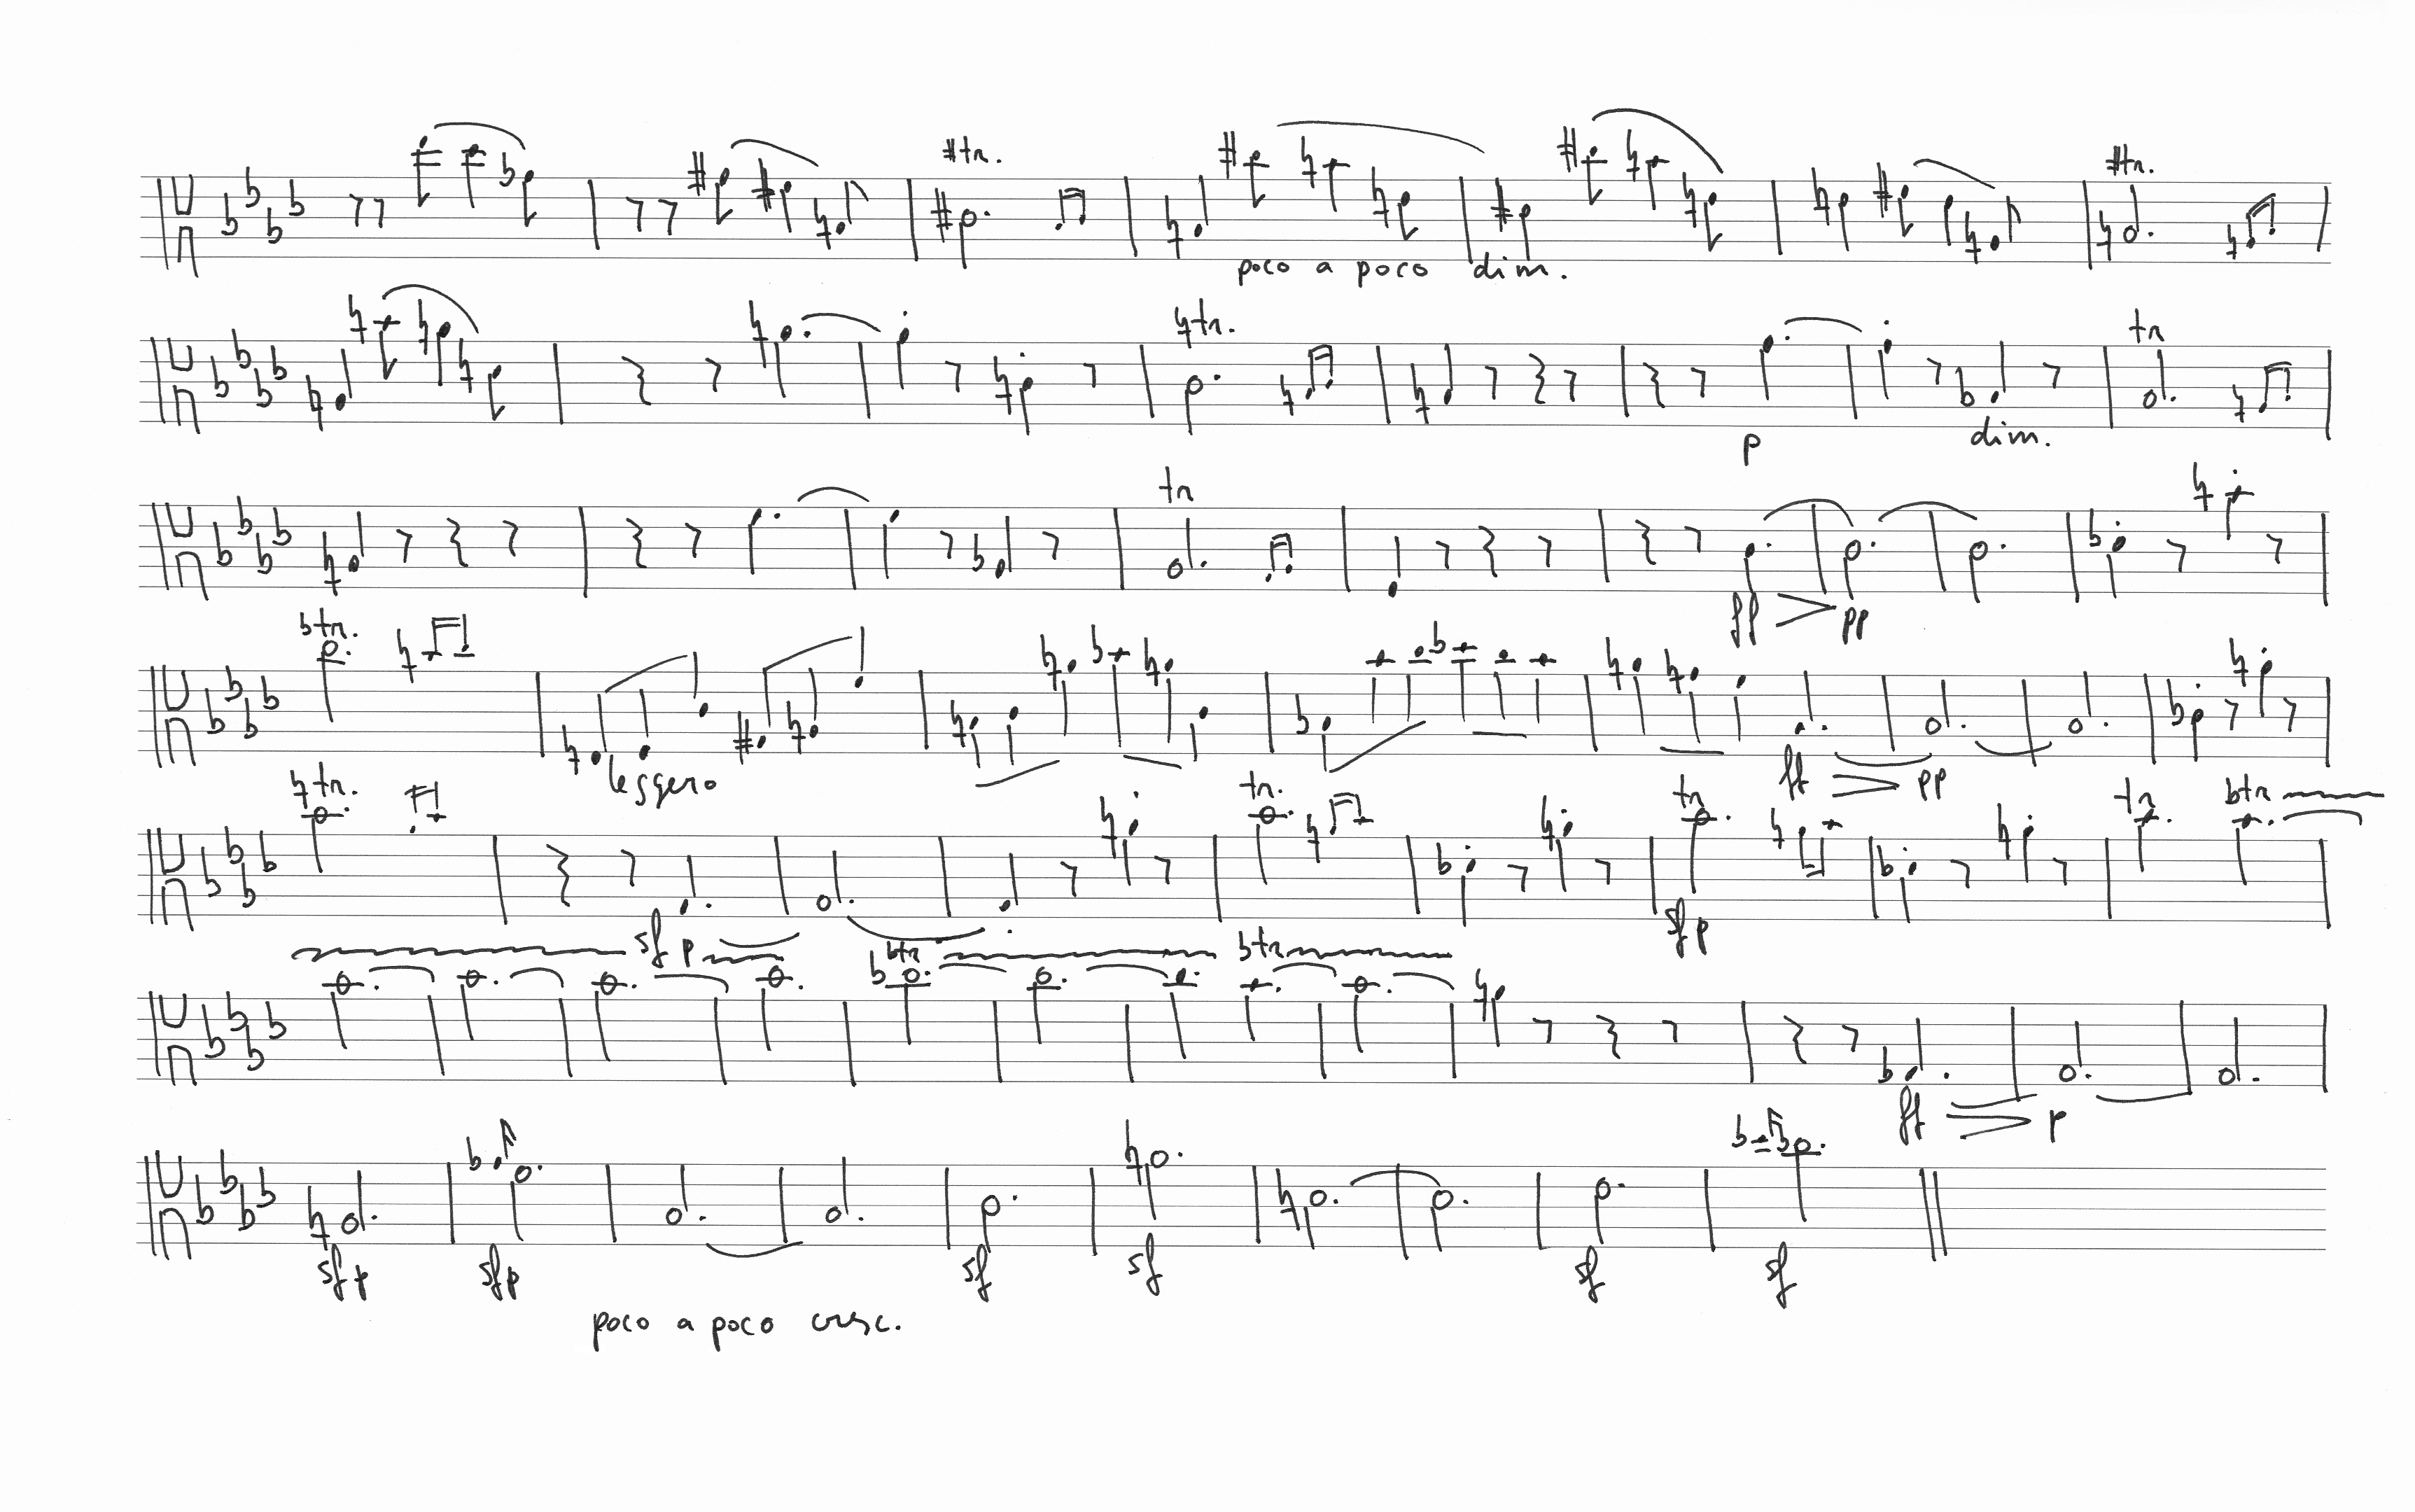 tr. tr.
poco a poco dim.
tr. tr
p dim.
tr
ff pp
tr.
leggero ff pp
tr. tr. tr tr tr
sf p sf p
tr tr
ff p
sf p sf p sf sf sf sf
poco a poco cresc.